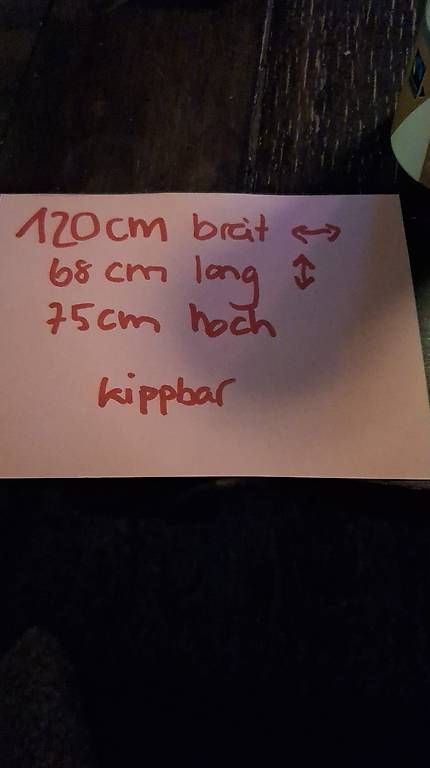 120cm breit ↔
68 cm lang ↕
75cm hoch
kippbar